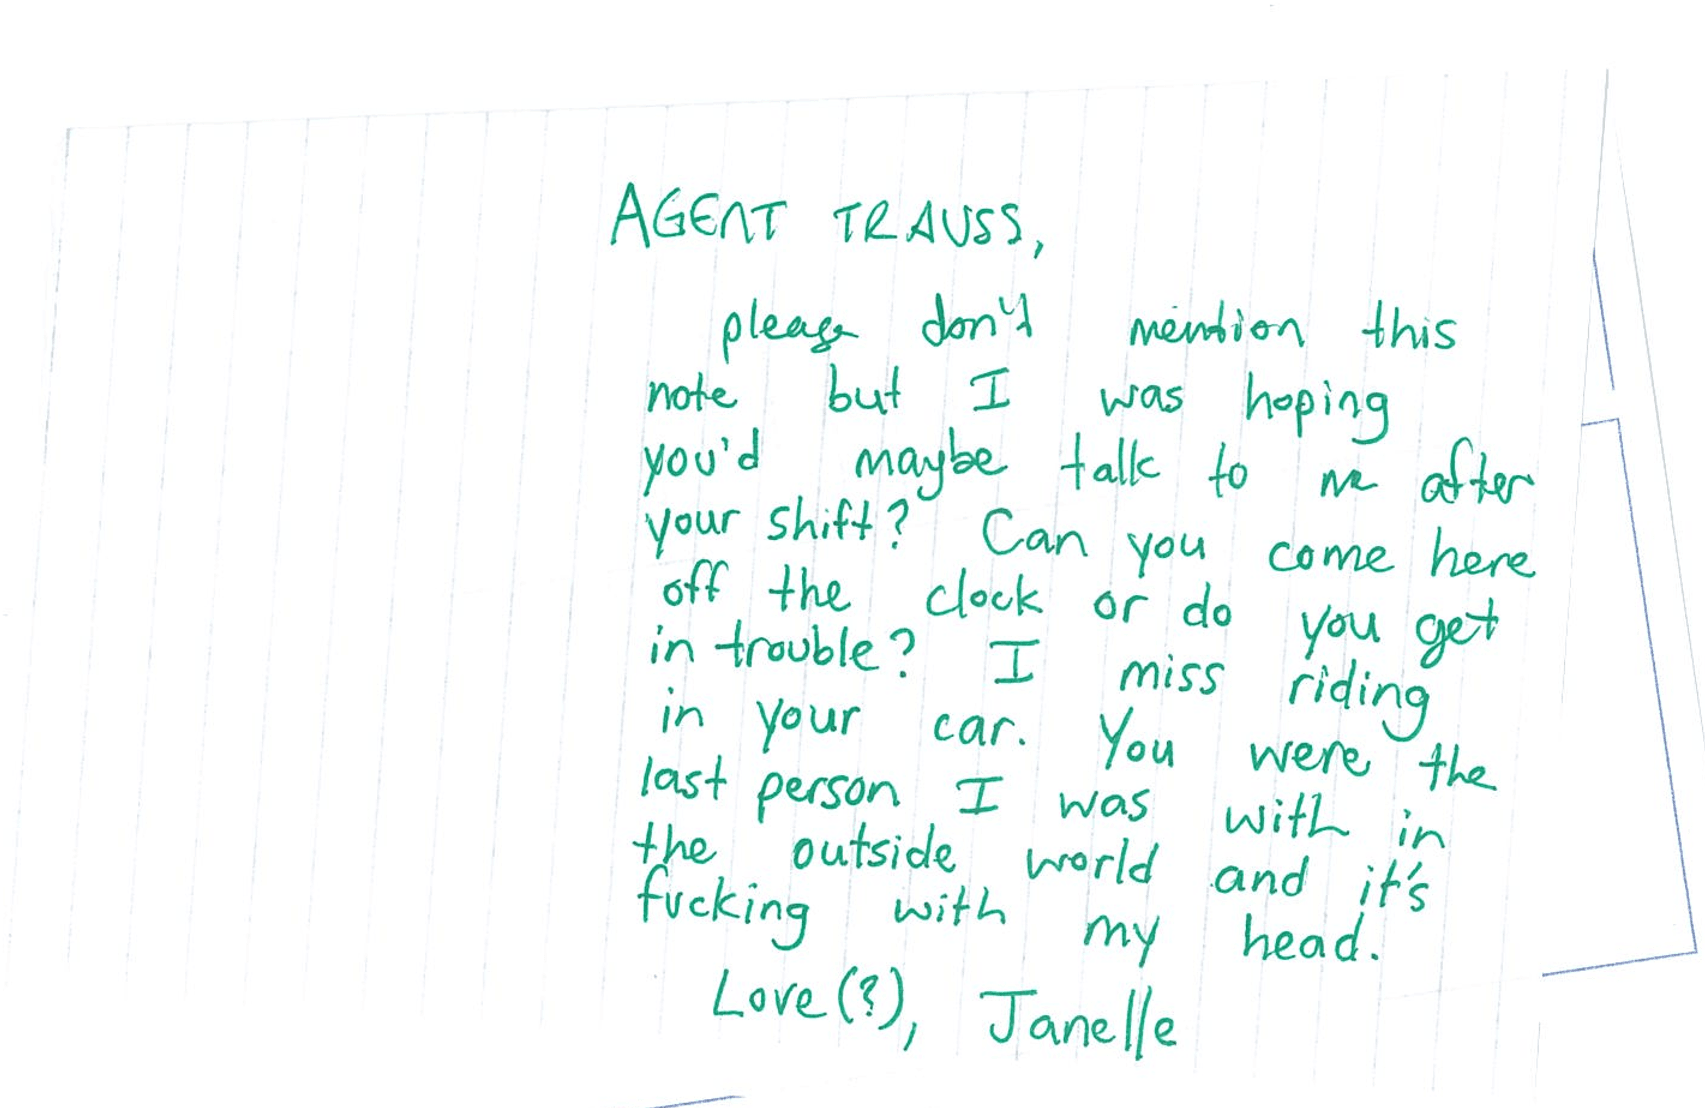 AGENT TRAUSS,
please don't mention this
note but I was hoping
you'd maybe talk to me after
your shift? Can you come here
off the clock or do you get
in trouble? I miss riding
in your car. You were the
last person I was with in
the outside world and it's
fucking with my head.
Love(?), Janelle